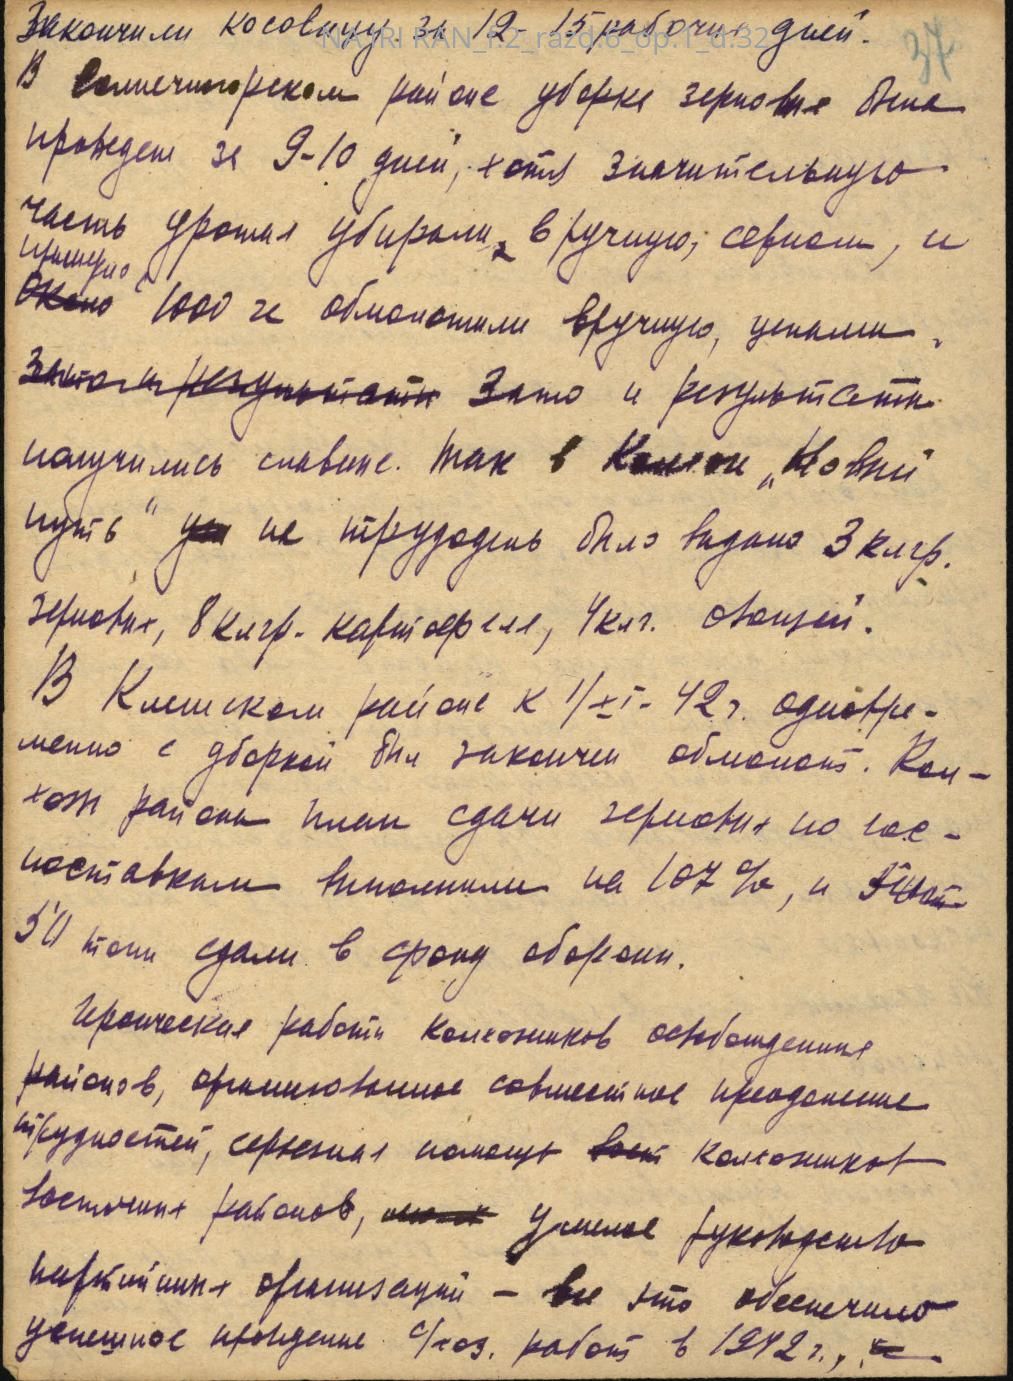 Закончили косовицу за 12-15 рабочих дней.
NA IRI RAN_f.2_razd.6_op.1_d.32
37
В Солнечногорском районе уборка зерновых была
проведена за 9-10 дней, хотя значительную
часть урожая убирали вручную, серпом, и
примерно
около 1000 га обмолотили вручную, цепами.
Зато и результаты Зато и результаты
получились славные. Так в Колхозе „Новый
путь" на трудодень было выдано 3 клгр.
зерновых, 8 клгр. картофеля, 4 клг. овощей.
В Клинском районе к 1/XI-42 г. одновре-
менно с уборкой был закончен обмолот. Кол-
хозы района план сдачи зерновых по гос-
поставкам выполнили на 107%, и
50 тонн сдали в фонд обороны.
Героическая работа колхозников освобожденных
районов, организованное совместное преодоление
трудностей, серьезная помощь вост колхозников
восточных районов, умелое руководство
партийных организаций - все это обеспечило
успешное проведение с/хоз. работ в 1942 г.,